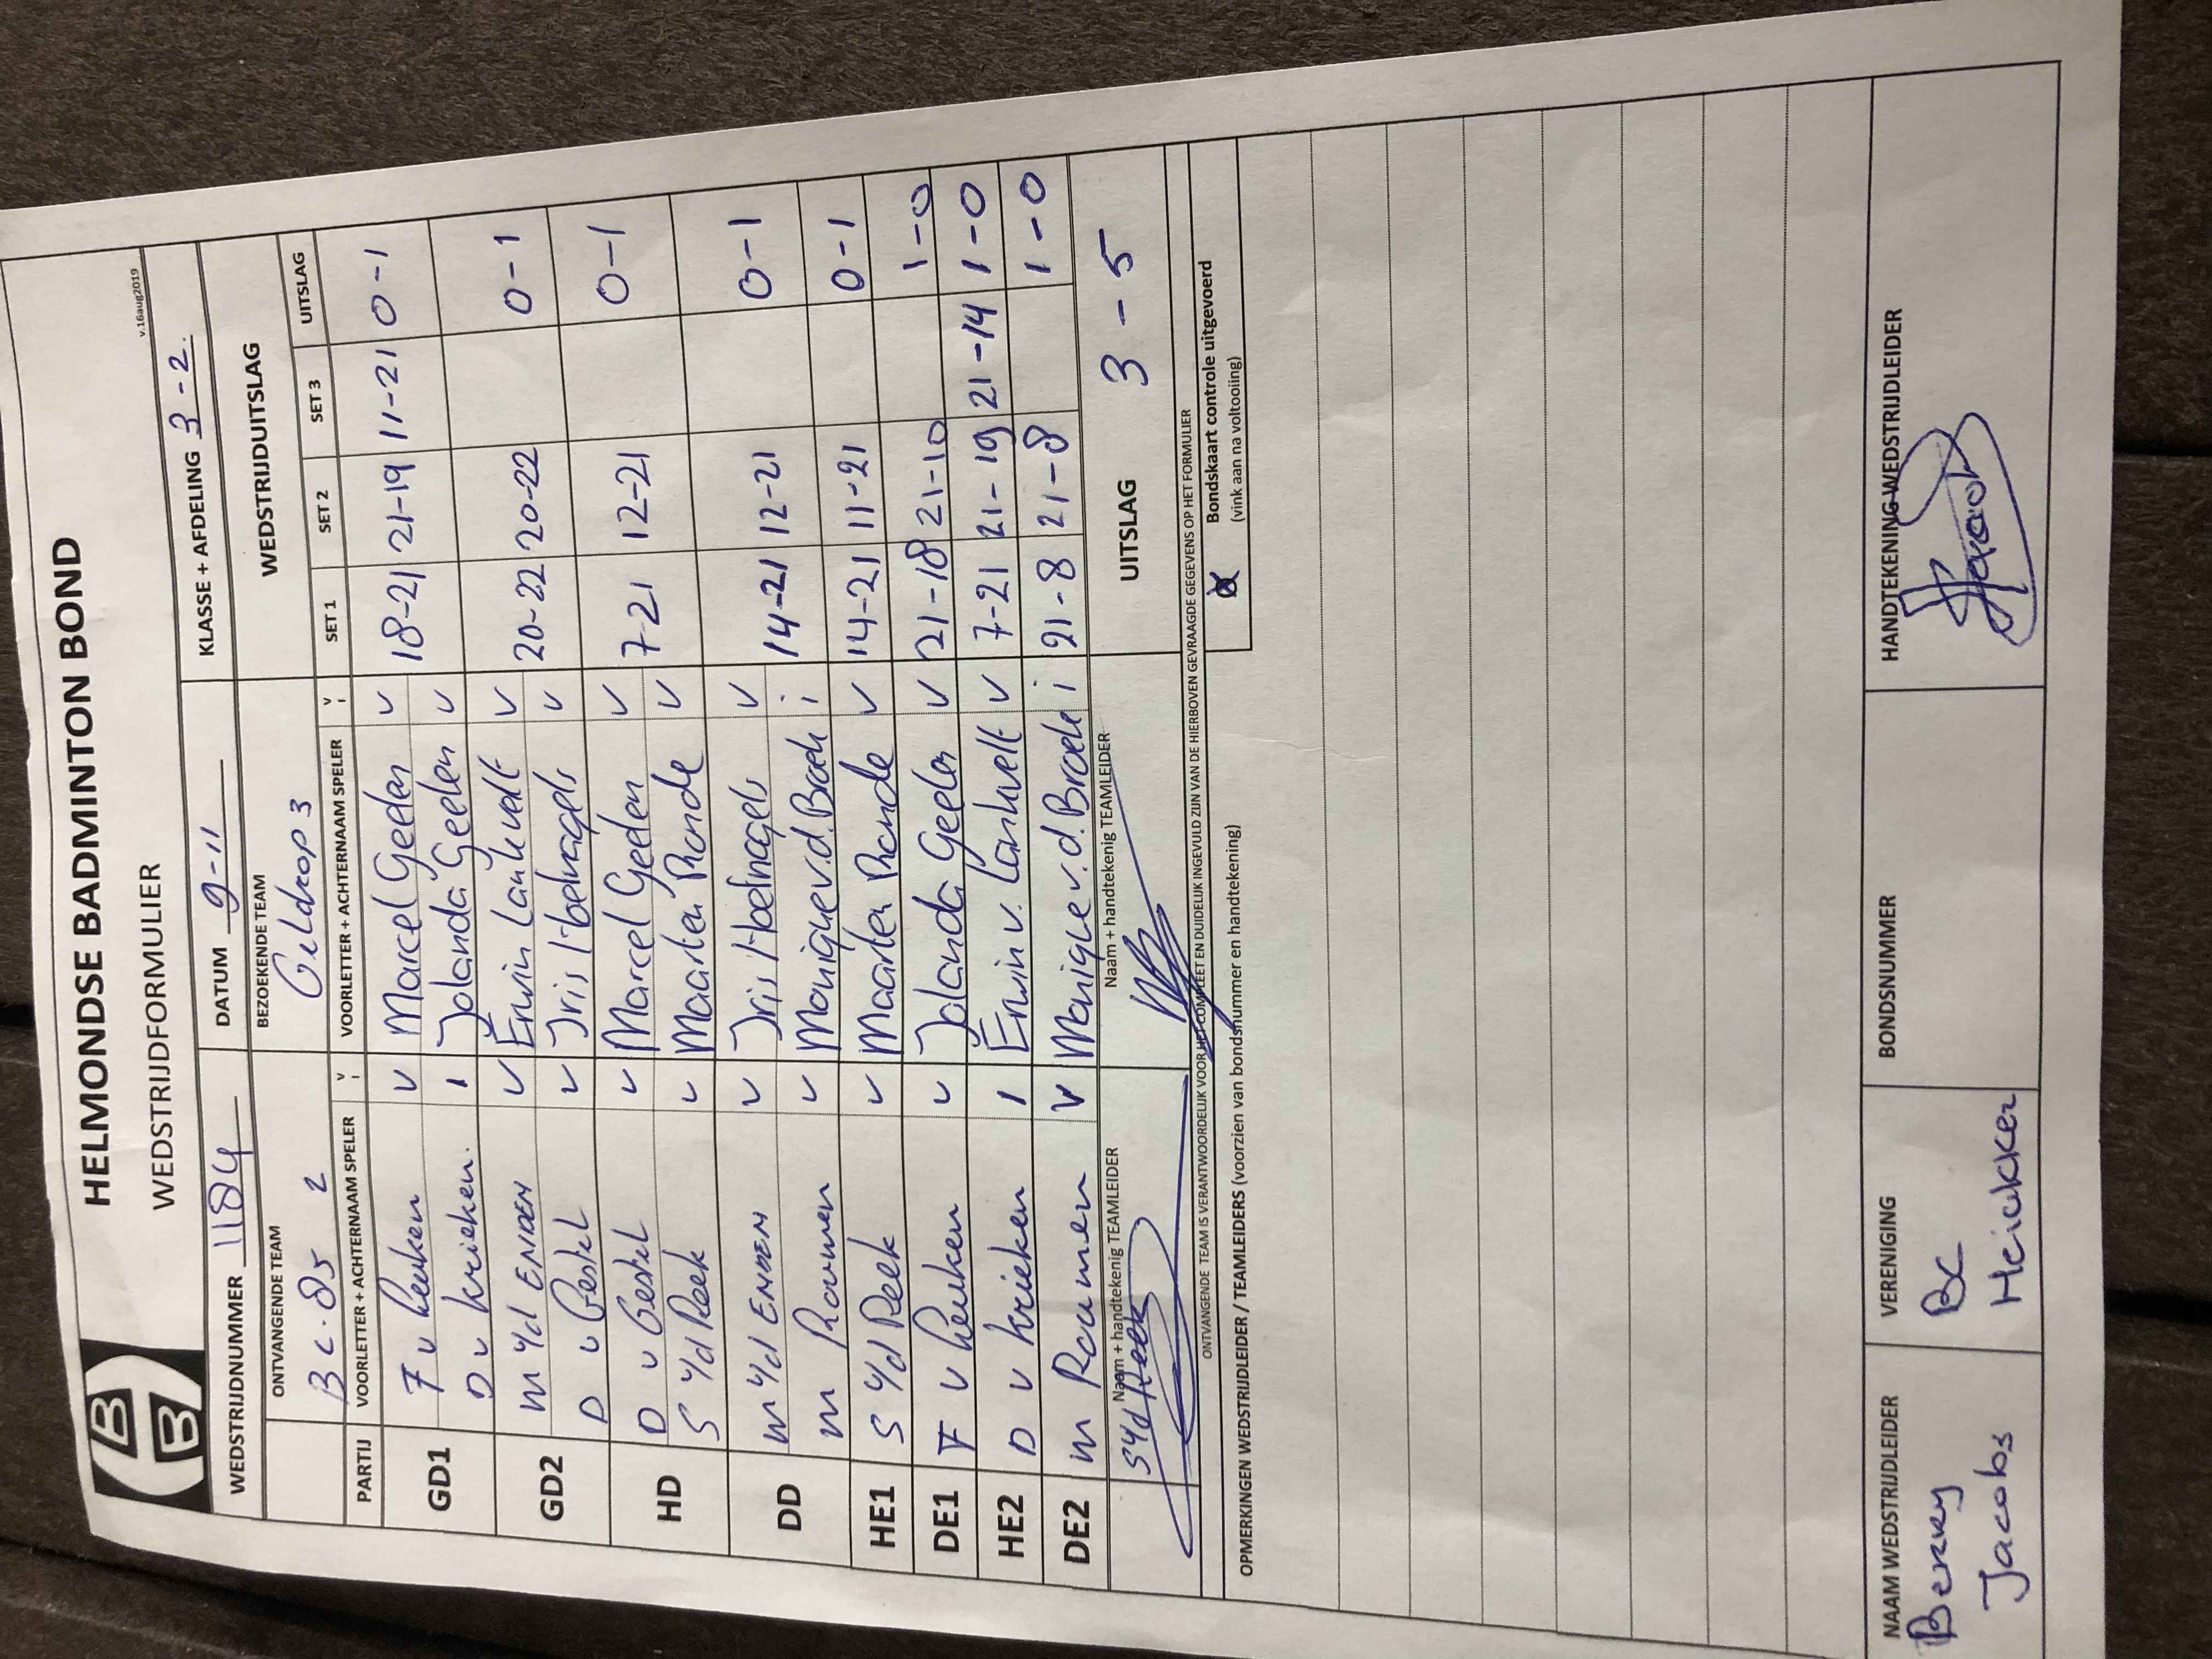 HELMONDSE BADMINTON BOND
WEDSTRIJDFORMULIER
v.16aug2019
WEDSTRIJDNUMMER 1184 DATUM 9-11 KLASSE + AFDELING 3-2.
ONTVANGENDE TEAM BEZOEKENDE TEAM WEDSTRIJDUITSLAG
BC-85 2 Geldrop 3
PARTIJ VOORLETTER + ACHTERNAAM SPELER V I VOORLETTER + ACHTERNAAM SPELER V I SET 1 SET 2 SET 3 UITSLAG
GD1 F v Keuken v Marcel Geelen v 18-21 21-19 11-21 0-1
D v krieken. i Jolanda Geelen v
GD2 m v/d ENDEN v Erwin Lankvelt v 20-22 20-22 0-1
D v Gestel v Iris Hoelnagels v
HD D v Gestel v Marcel Geelen v 7-21 12-21 0-1
S v/d Reek v Maarten Ronde v
DD m v/d ENDEN v Iris Hoelnagels v 14-21 12-21 0-1
m Roumen v Monique v.d. Broek i
HE1 S v/d Reek v Maarten Ronde v 14-21 11-21 0-1
DE1 F v Keuken v Jolanda Geelen v 21-18 21-10 1-0
HE2 D v krieken i Erwin v. Lankvelt v 7-21 21-19 21-14 1-0
DE2 m Roumen v Monique v.d. Broek i 21-8 21-8 1-0
Naam + handtekenig TEAMLEIDER Naam + handtekenig TEAMLEIDER UITSLAG 3 - 5
S v/d Reek
ONTVANGENDE TEAM IS VERANTWOORDELIJK VOOR HET COMPLEET EN DUIDELIJK INGEVULD ZIJN VAN DE HIERBOVEN GEVRAAGDE GEGEVENS OP HET FORMULIER
Bondskaart controle uitgevoerd
(vink aan na voltooiing)
OPMERKINGEN WEDSTRIJDLEIDER / TEAMLEIDERS (voorzien van bondsnummer en handtekening)
NAAM WEDSTRIJDLEIDER VERENIGING BONDSNUMMER HANDTEKENING WEDSTRIJDLEIDER
Berry BC
Jacobs Heiakker